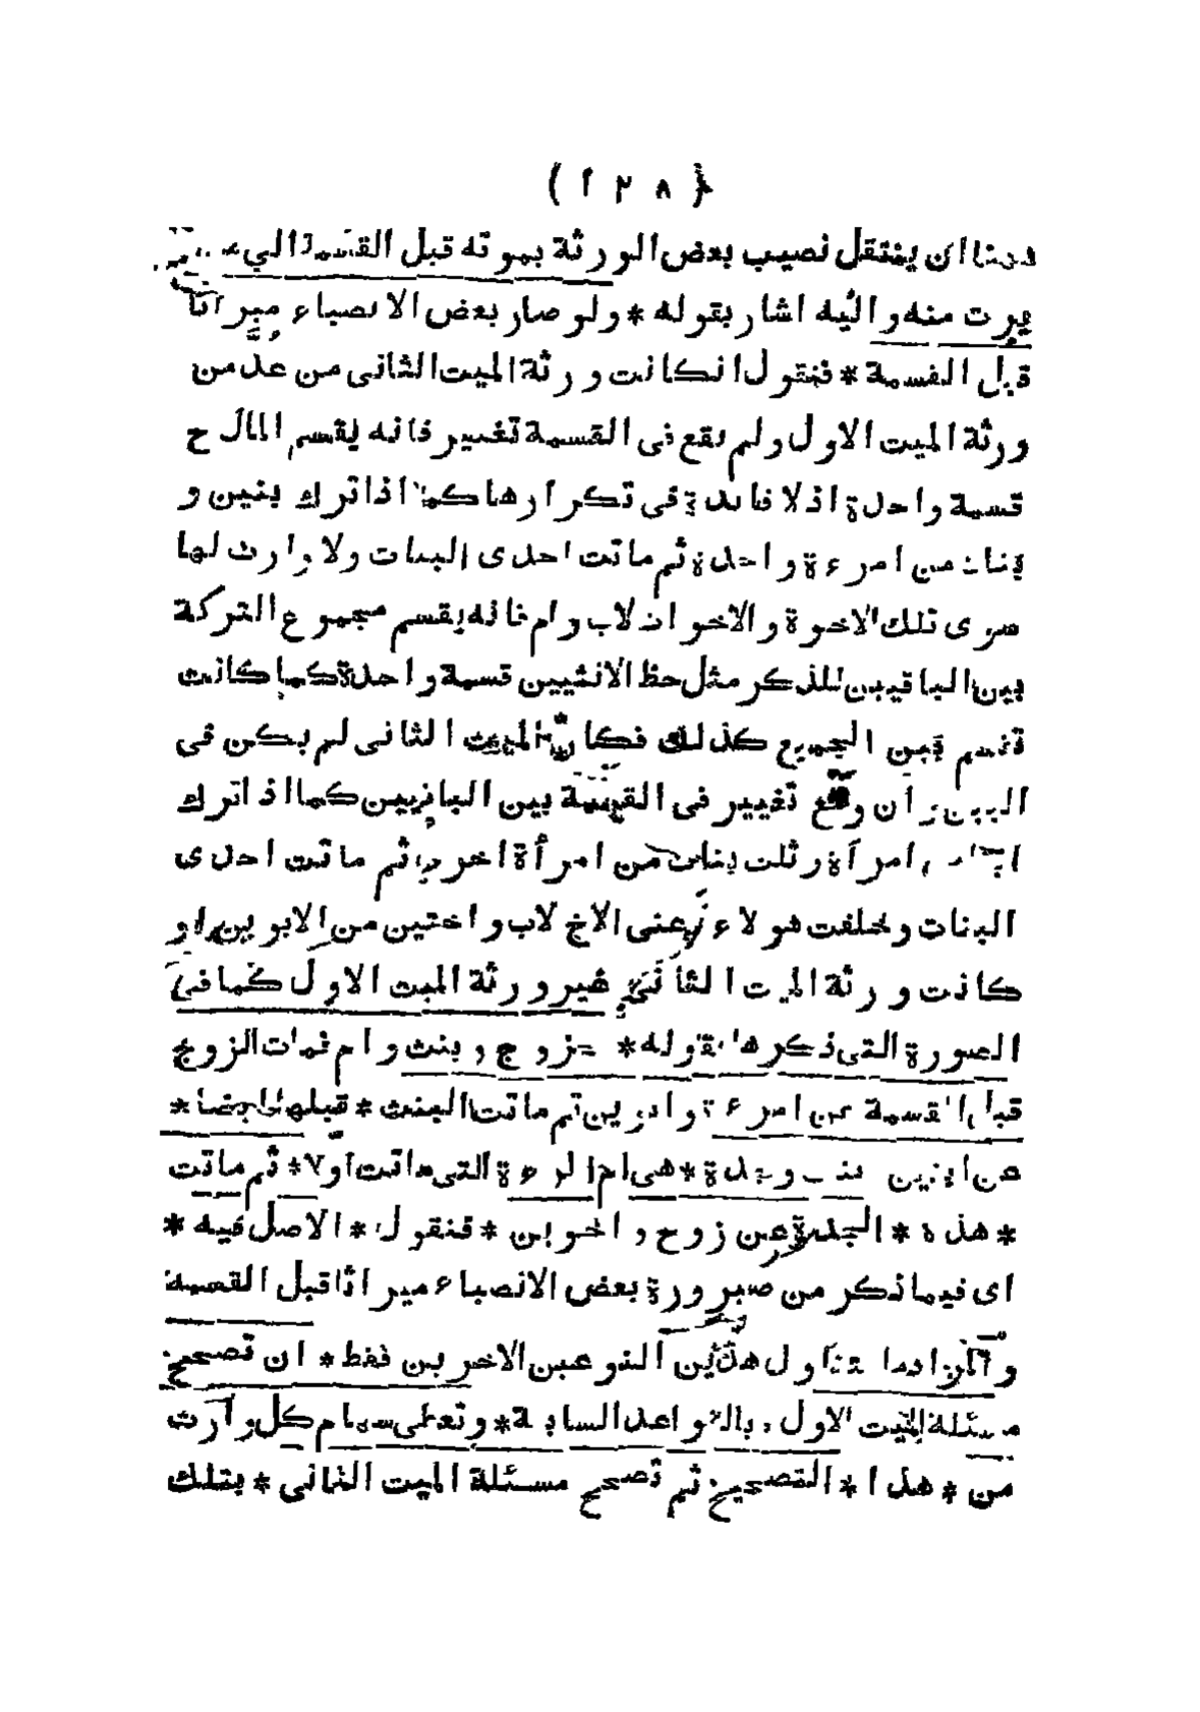 ( ١٢٨ )
ههنا ان ينتقل نصيب بعض الورثة بموته قبل القسمة الي من
يرث منه واليه اشار بقوله * ولو صار بعض الانصباء ميراثا
قبل القسمة * فنقول ان كانت ورثة الميت الثانى من عدا من
ورثة الميت الاول ولم يقع فى القسمة تغيير فانه يقسم المال ح
قسمة واحدة اذ لا فائدة فى تكرارها كما اذا ترك بنين و
بنات من امرءة واحدة ثم ماتت احدى البنات ولا وارث لها
سوى تلك الاخوة والاخوات لاب وام فانه يقسم مجموع التركة
بين الباقيين للذكر مثل حظ الانثيين قسمة واحدة كما كانت
تقسم بين الجميع كذلك فكان الميت الثانى لم يكن فى
البين وان وقع تغيير فى القسمة بين الباقيين كما اذا ترك
ابنا من امرأة وثلث بنات من امرأة اخرى ثم ماتت احدى
البنات وخلفت هولاء اعنى الاخ لاب واختين من الابوين او
كانت ورثة الميت الثانى غير ورثة الميت الاول كما فى
الصورة التى ذكرها بقوله * كزوج وبنت وام فمات الزوج
قبل القسمة عن امرءة وابوين ثم ماتت البنت * قبلها ايضا *
عن ابنين وبنت وجدة * هى ام المرءة التى ماتت اولا * ثم ماتت
* هذه * الجدة عن زوج واخوين * فنقول * الاصل فيه *
اى فيما ذكر من صيرورة بعض الانصباء ميراثا قبل القسمة
النوعين الاخريين فقط * ان تصحح
مسئلة الميت الاول بالقواعد السابقة * وتعطى سهام كل وارث
من * هذا * التصحيح ثم تصحح مسئلة الميت الثانى * بتلك